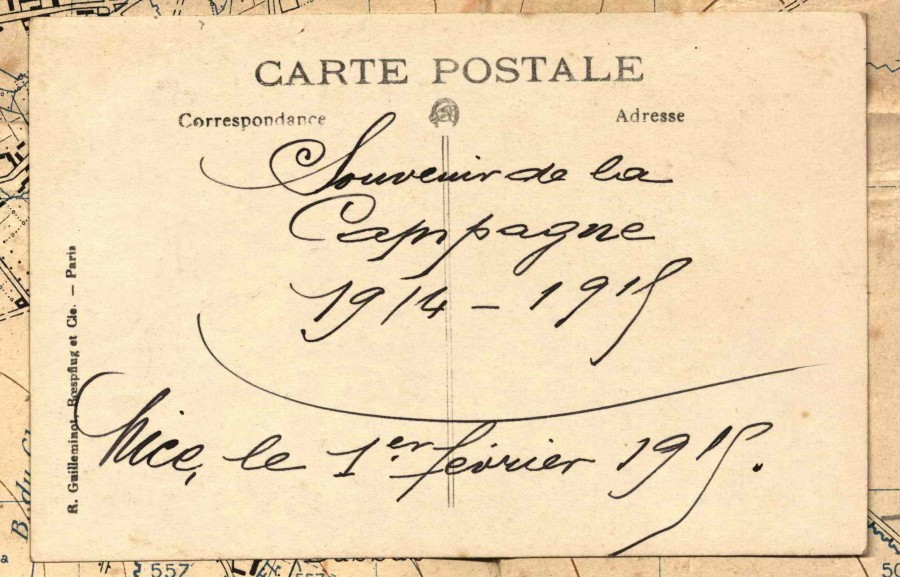 CARTE POSTALE
Correspondance Adresse
Souvenir de la
Campagne
1914 - 1915
Nice, le 1er février 1915.
R. Guilleminot, Bœspflug et Cie. — Paris
B. du
557
50